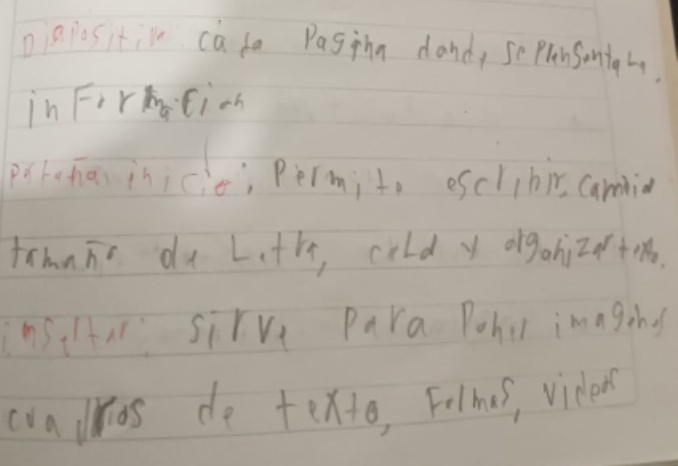 Diapositiva cada Pagina donde se Presenta la
informacion
Pestaña inicio: Permite escribir, cambia
tamaño de Letra, color y organizar texto.
insertar: sirve para Poner imagenes
cuadros de texto, Formas, videos